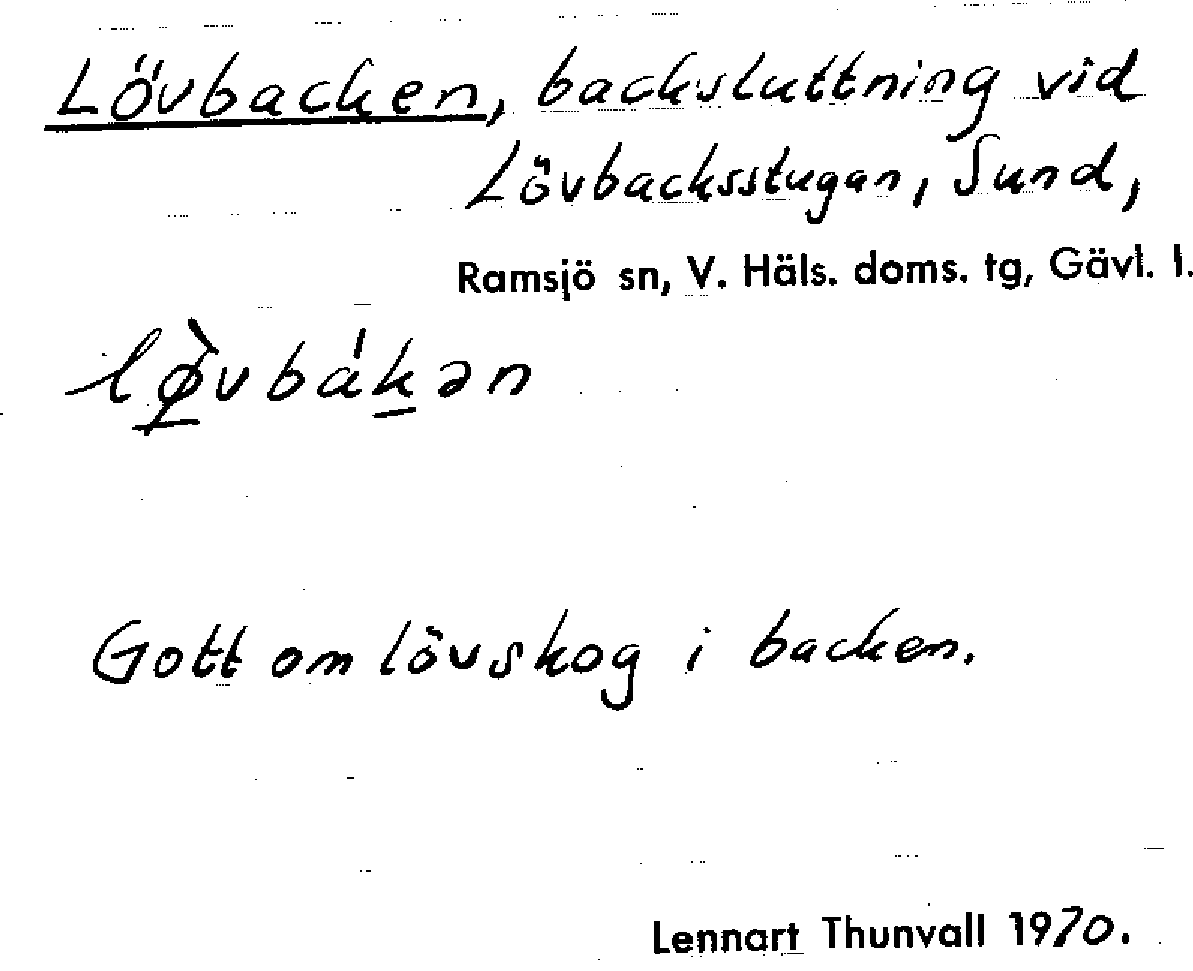 Lövbacken, backsluttning vid
Lövbacksstugan, Sund,
Ramsjö sn, V. Häls. doms. tg, Gävl. l.
lø̀vbák̲ən
Gott om lövskog i backen.
Lennart Thunvall 1970.